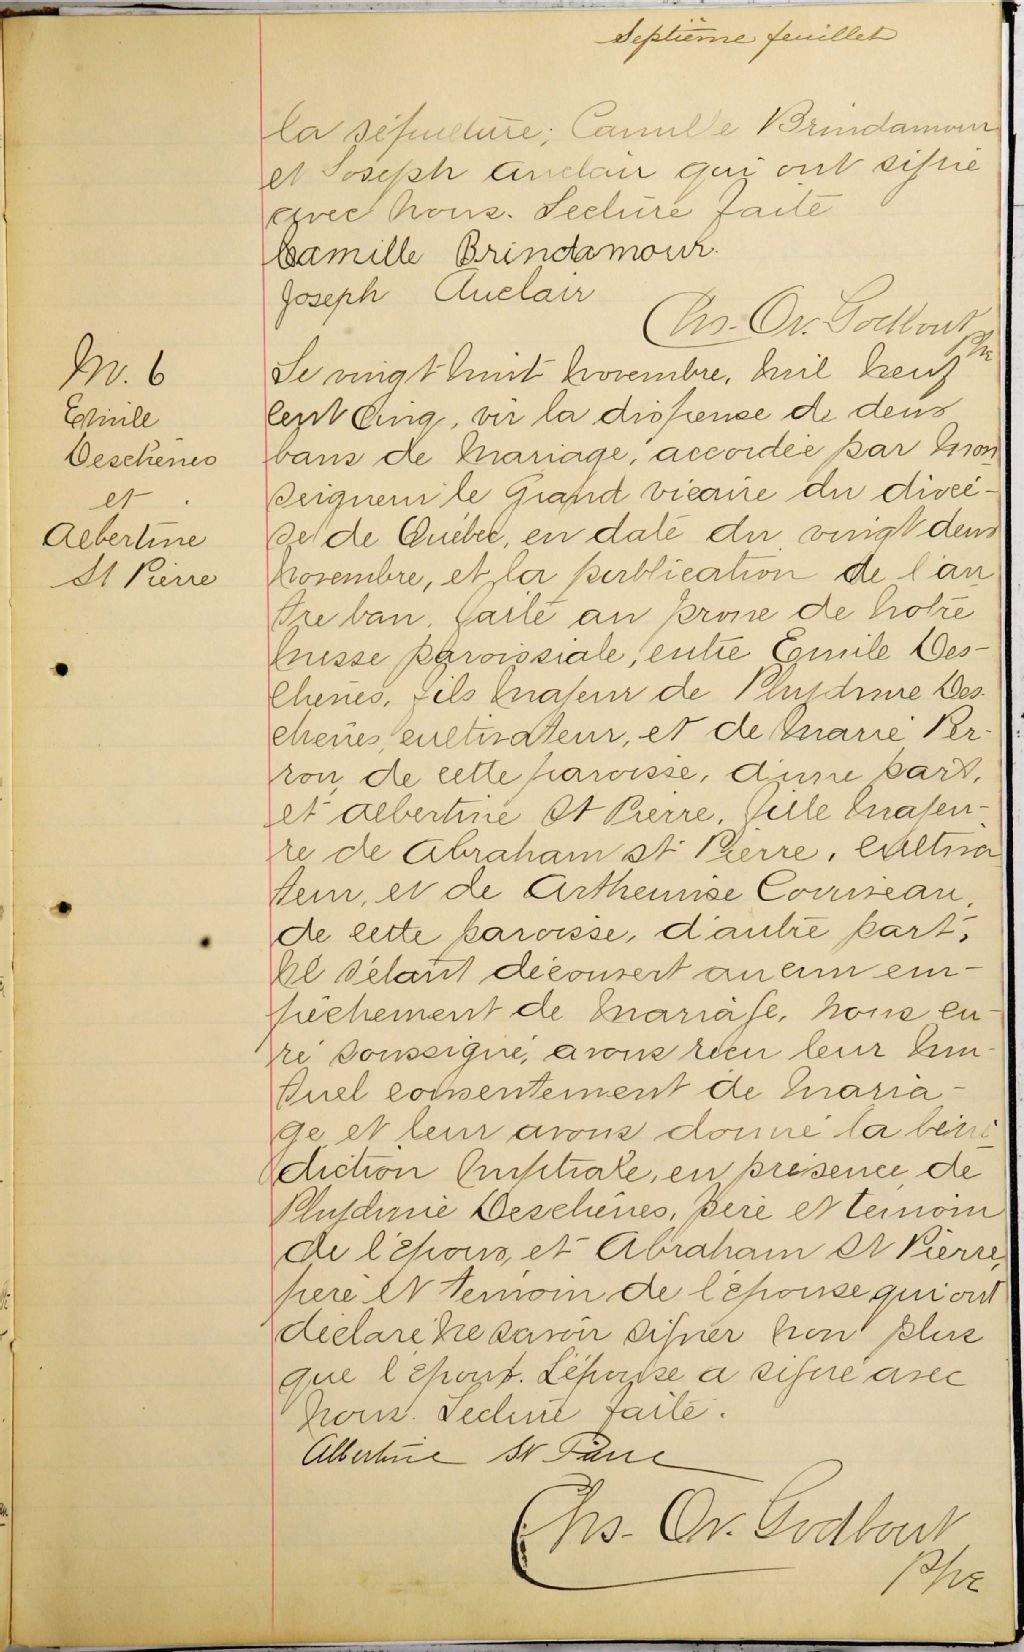 Septième feuillet
la sépulture; Camille Brindamour
et Joseph Auclair qui ont signé
avec nous. Lecture faite
Camille Brindamour.
Joseph Auclair
Chs. Ov. Godbout
Ptre
M. 6
Emile
Deschênes
et
Albertine
St Pierre
Le vingt huit novembre, mil neuf
cent cinq, vu la dispense de deux
bans de mariage, accordée par Mon
seigneur le Grand vicaire du diocè-
se de Québec, en date du vingt deux
novembre, et la publication de l'au
tre ban, faite au prone de notre
messe paroissiale, entre Emile Des-
chênes, fils majeur de Phydime Des-
chênes, cultivateur, et de Marie Per-
ron, de cette paroisse, d'une part,
et Albertine St Pierre, fille majeu-
re de Abraham St Pierre, cultiva
teur, et de Arthemise Couriveau,
de cette paroisse, d'autre part;
ne s'étant découvert aucun em-
pêchement de mariage, nous cu-
ré soussigné, avons reçu leur mu-
tuel consentement de maria-
ge et leur avons donné la béné
diction nuptiale, en présence de
Phydime Deschênes, père et temoin
de l'époux, et Abraham St Pierre,
père et temoin de l'épouse qui ont
déclaré ne savoir signer non plus
que l'époux. L'épouse a signé avec
nous. Lecture faite.
Albertine St Pierre
Chs. Ov. Godbout
Ptre